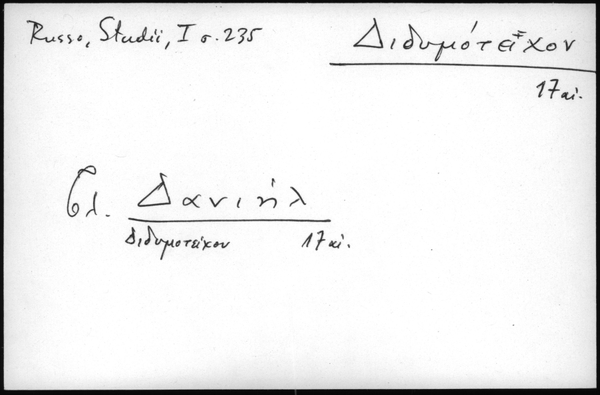 Russo, Studii, I σ. 235
Διδυμότειχον
17 αἰ.
βλ. Δανιήλ
Διδυμοτείχου 17 αἰ.